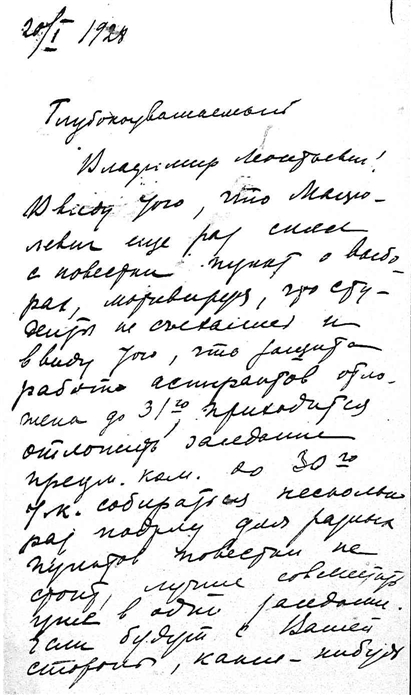 20/I 1928
Глубокоуважаемый
Владимир Леонтьевич!
Ввиду того, что Мацю-
левич еще раз снял
с повестки пункт о выбо-
рах, мотивируя, что сту-
денты не съехались и
ввиду того, что защита
работ аспирантов отло-
жена до 31го, приходится
отложить заседание
презм. ком. до 30го
т.к. собираться несколько
раз подряд для разных
пунктов повестки не
стоит, лучше совместить
уже в одно заседание.
Если будут с Вашей
стороны, какие-нибудь